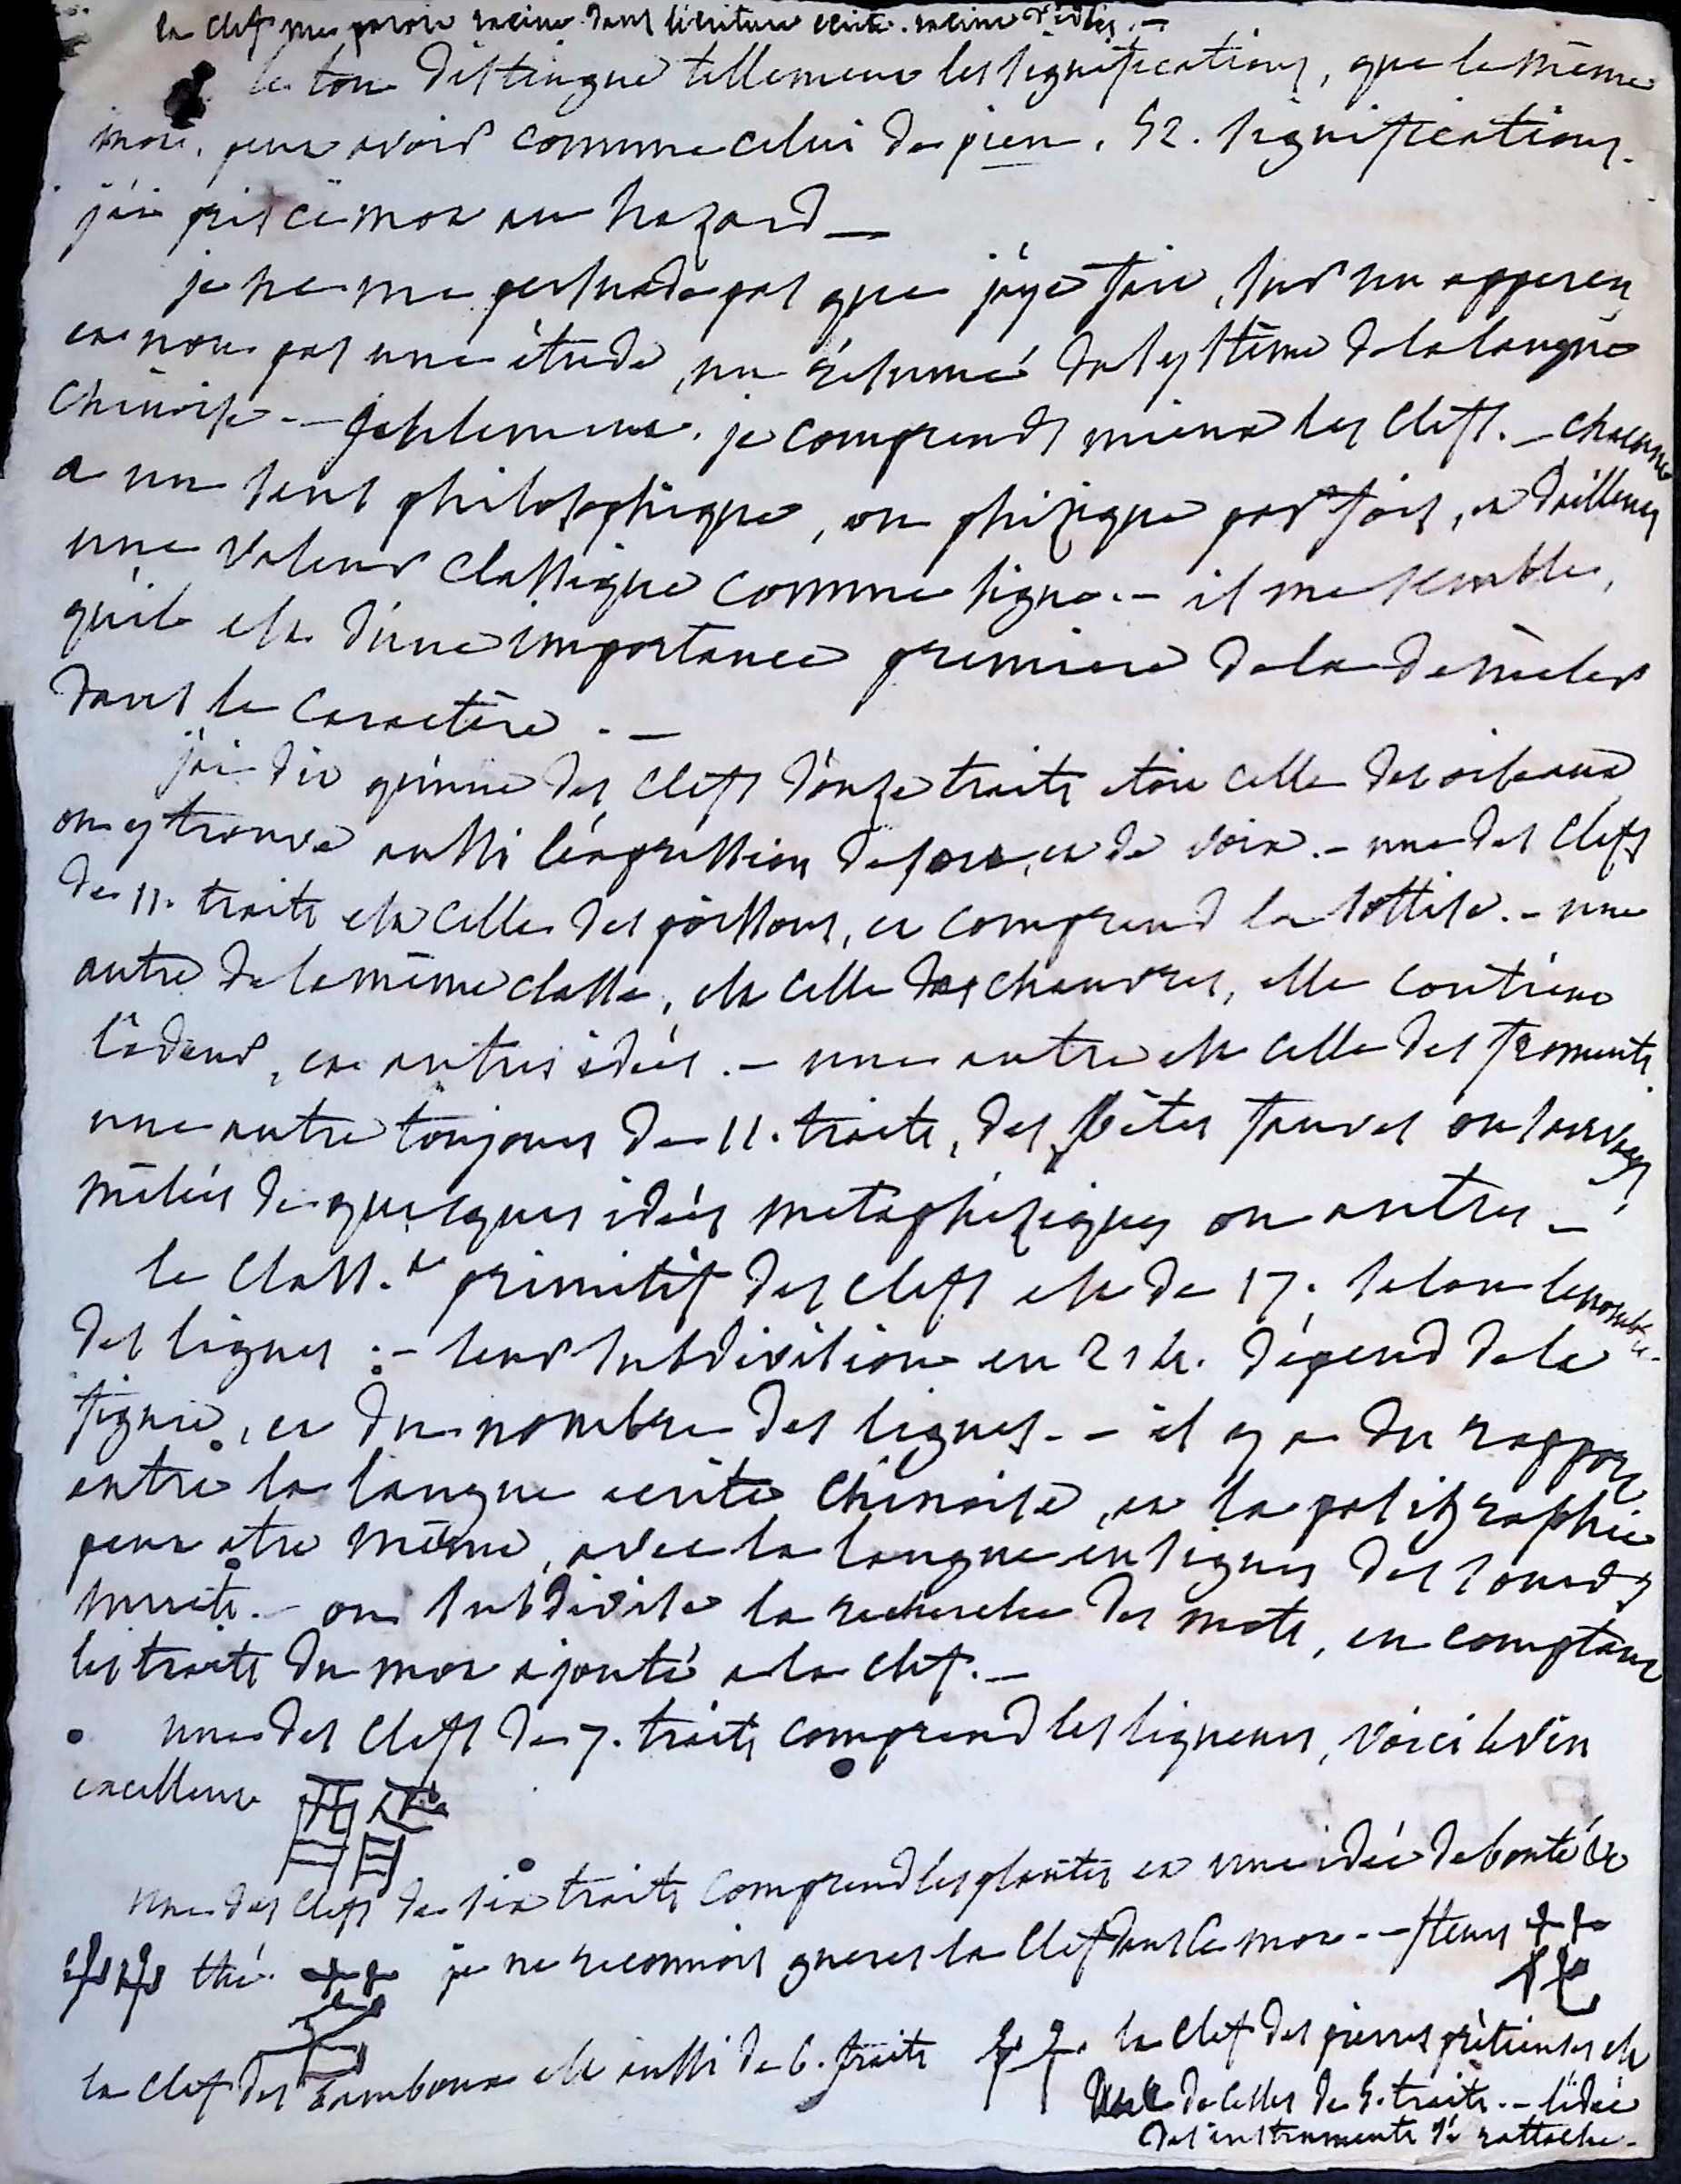 la clef me paroit racine dans l'écriture écrite. racine d'idées. —
le ton distingue tellement les significations, que le même
mot, peut avoir comme celui de pien, 52. significations.
j'ai pris ce mot au hazard —
je ne me persuade pas que j'aye fait, sur un apperçu
et non pas une étude, un résumé du système de la langue
chinoise. — seulement, je comprends mieux les clefs. — chacune
a un sens philosophique, ou phisique par fois, et d'ailleurs
une valeur classique comme signe. — il me semble,
qu'il est d'une importance premiere de la démêler
dans le caractère. —
j'ai dit qu'une des clefs d'onze traits étoit celle des oiseaux
on y trouve aussi l'expression de et de voix. — une des clefs
de 11. traits est celle des poissons, et comprend la sottise. — une
autre de la même classe, est celle des chanvres, elle contient
l'odeur, et autres idées. — une autre est celle des froments
une autre toujours de 11. traits, des bêtes fauves ou sauvages
mêlées de quelques idées metaphisiques ou autres —
le class.t primitif des clefs est de 17. selon le nombre
des lignes : — leur subdivision en 214. dépend de la
figure, et du nombre des lignes. — il y a du rapport
entre la langue écrite chinoise, et la pasigraphie
peut être même, avec la langue en signes des sourds
muets. — on subdivise la recherche des mots, en comptant
les traits du mot ajouté a la clef. —
une des clefs de 7. traits comprend les liqueurs, voici le vin
excellent
une des clefs de six traits comprend les plantes et une idée de bonté &c
艸 thé. 茶 je ne reconnois gueres la clef dans ce mot. — fleurs 花
la clef des bamboux est aussi de 6. traits 竹. la clef des pierres prétieuses est
une de celles de 5. traits. — l'idée
des instruments s'y rattache —